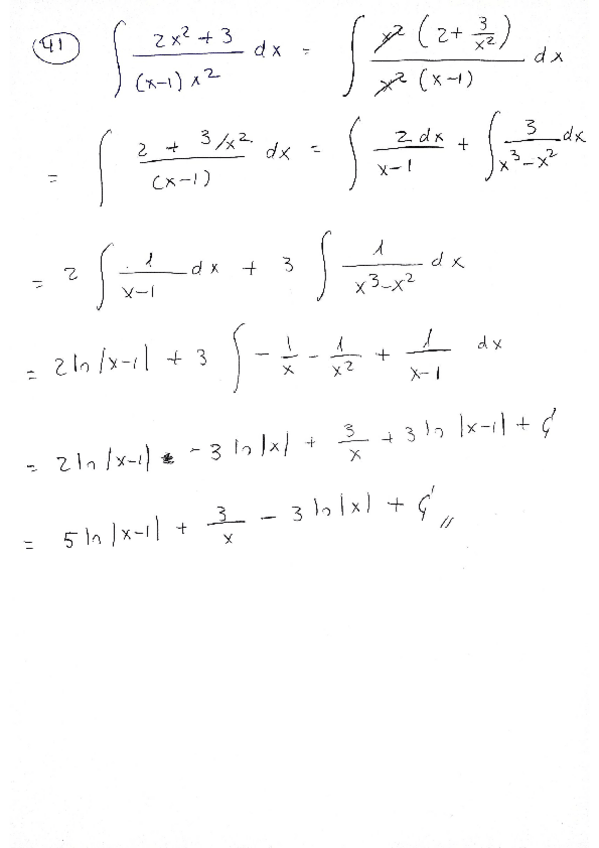 41 ∫ (2x² + 3)/((x-1) x²) dx = ∫ (x² (2 + 3/x²))/(x² (x-1)) dx
= ∫ (2 + 3/x²)/((x-1)) dx = ∫ (2 dx)/(x-1) + ∫ 3/(x³-x²) dx
= 2 ∫ 1/(x-1) dx + 3 ∫ 1/(x³-x²) dx
= 2 ln |x-1| + 3 ∫ - 1/x - 1/x² + 1/(x-1) dx
= 2 ln |x-1| - 3 ln |x| + 3/x + 3 ln |x-1| + C
= 5 ln |x-1| + 3/x - 3 ln |x| + C //